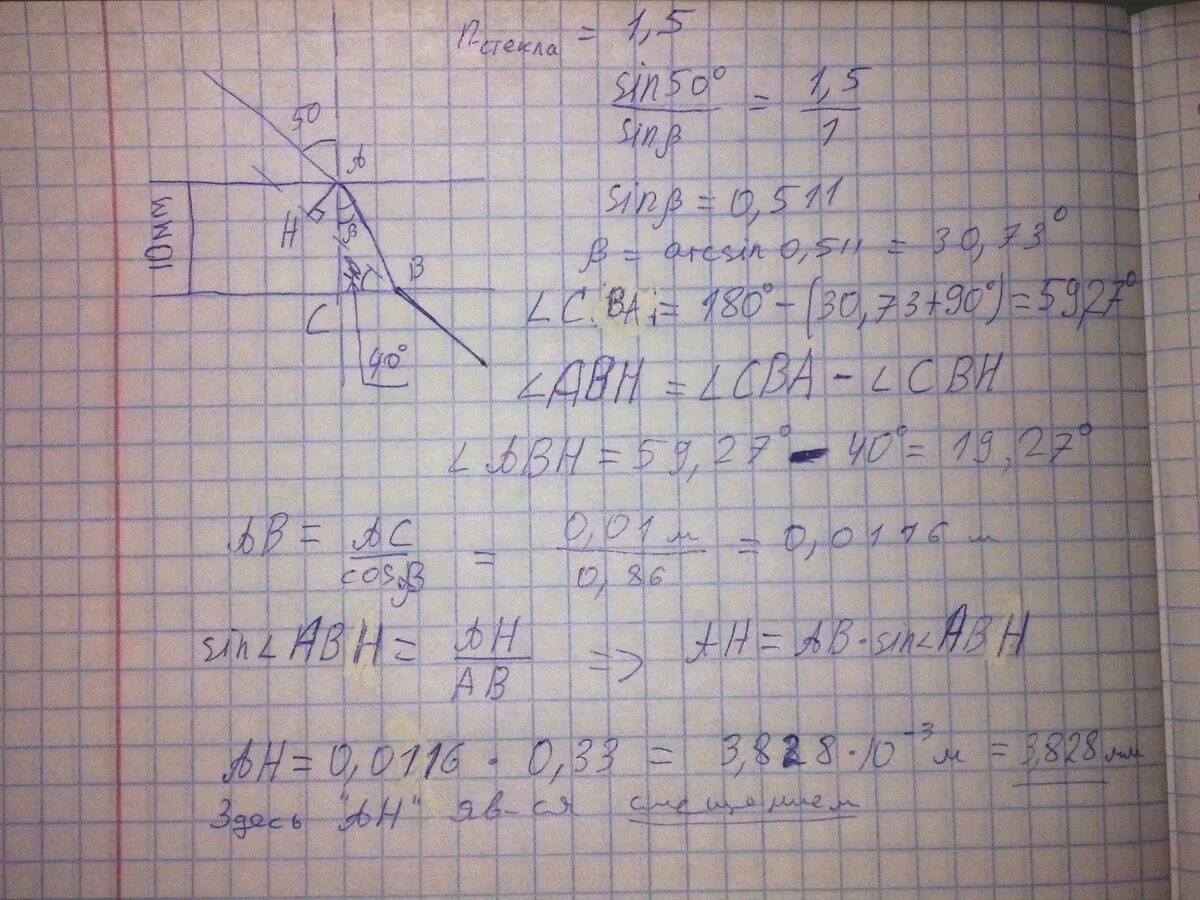 n стекла = 1,5
sin50° / sinβ = 1,5 / 1
sinβ = 0,511
β = arcsin 0,511 = 30,73°
∠CBA = 180° - (30,73+90°) = 59,27°
∠ABH = ∠CBA - ∠CBH
∠ABH = 59,27° - 40° = 19,27°
AB = AC / cosβ = 0,01 м / 0,86 = 0,0116 м
sin∠ABH = AH / AB => AH = AB · sin∠ABH
AH = 0,0116 · 0,33 = 3,828 · 10⁻³ м = 3,828 мм
Здесь "AH" яв-ся смещением
50
A
H
β
B
C
40°
10мм